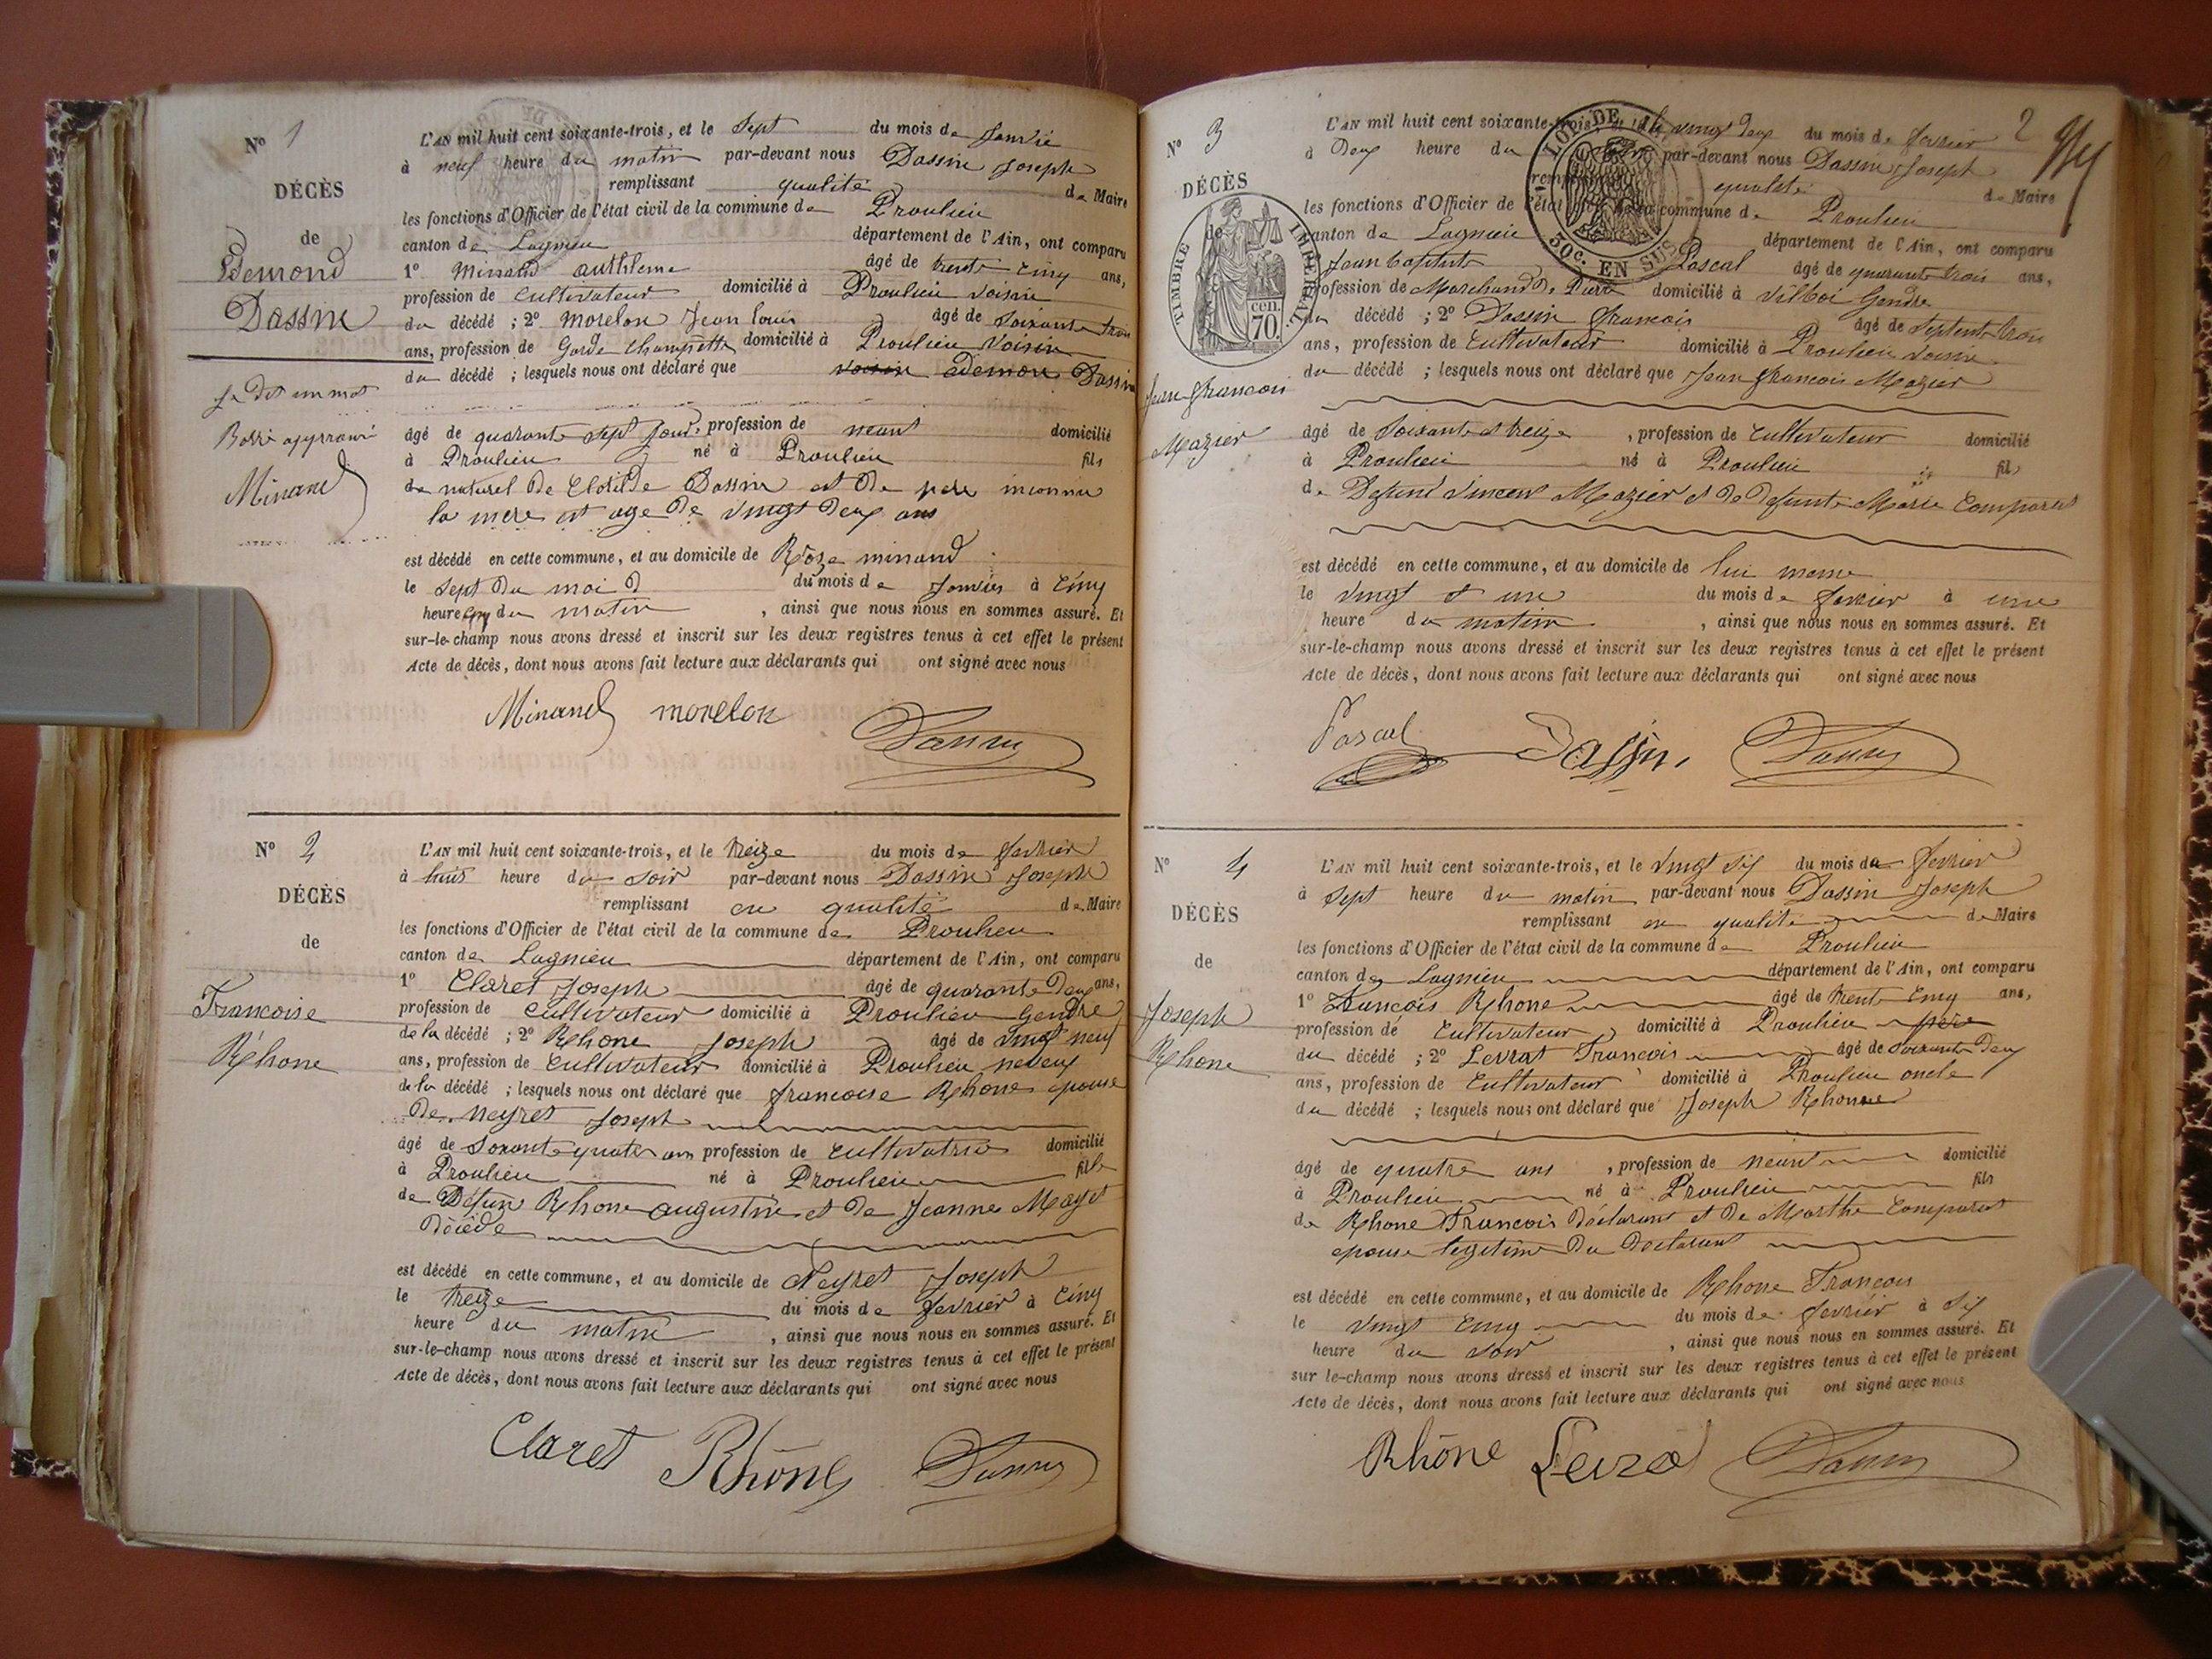 N° 1
DÉCÈS
de
Edemond
Dassin
je dit un mot
Barré approuvé
Minand
L'AN mil huit cent soixante-trois, et le Sept du mois de Janvié
à neuf heure du matin par-devant nous Dassin Joseph
remplissant qualité de Maire
les fonctions d'Officier de l'état civil de la commune de Proulieu
canton de Lagnieu département de l'Ain, ont comparu
1° Minand anthleme âgé de trente Cinq ans,
profession de Cultivateur domicilié à Proulieu voisin
du décédé ; 2° Morelon Jean louis âgé de Soixante trois
ans, profession de Garde Champette domicilié à Proulieu Voisin
du décédé ; lesquels nous ont déclaré que voisin Edemon Dassin
âgé de quarante sept jour profession de neant domicilié
à Proulieu né à Proulieu fils
de naturel de Clotilde Dassin et de pere inconnu
la mere et age de vingt Deux ans
est décédé en cette commune, et au domicile de Roze minand
le Sept Du moi D du mois de Janvier à Cinq
heure du matin , ainsi que nous nous en sommes assuré. Et
sur-le-champ nous avons dressé et inscrit sur les deux registres tenus à cet effet le présent
Acte de décès, dont nous avons fait lecture aux déclarants qui ont signé avec nous
Minand morelon Dassin
N° 2
DÉCÈS
de
Francoise
Rhone
L'AN mil huit cent soixante-trois, et le treize du mois de fevrier
à huit heure du soir par-devant nous Dassin Joseph
remplissant en qualité de Maire
les fonctions d'Officier de l'état civil de la commune de Proulieu
canton de Lagnieu département de l'Ain, ont comparu
1° Claret Joseph âgé de quarante Deux ans,
profession de Cultivateur domicilié à Proulieu Gendre
de la décédé ; 2° Rhone Joseph âgé de vingt neuf
ans, profession de Cultivateur domicilié à Proulieu neveux
de la décédé ; lesquels nous ont déclaré que francoise Rhone epouse
De neyret Joseph
âgé de Soixante quatre ans profession de Cultivatrice domicilié
à Proulieu né à Proulieu fille
de Défun Rhone augustin et de Jeanne Mayet
Décéde
est décédé en cette commune, et au domicile de Neyret Joseph
le treize du mois de fevrier à Cinq
heure du matin , ainsi que nous nous en sommes assuré. Et
sur-le-champ nous avons dressé et inscrit sur les deux registres tenus à cet effet le présent
Acte de décès, dont nous avons fait lecture aux déclarants qui ont signé avec nous
Claret Rhône Dassin
2
N° 3
DÉCÈS
de
TIMBRE IMPERIAL
70 cen.
LOI DE
30 c. EN SUS
Jean francois
Mazier
L'AN mil huit cent soixante-trois, et le vingt Deux du mois de fevrier
à Deux heure du par-devant nous Dassin Joseph
remplissant qualité de Maire
les fonctions d'Officier de l'état civil de la commune de Proulieu
canton de Lagnieu département de l'Ain, ont comparu
Jean baptiste Pascal âgé de quarante trois ans,
profession de Marchand De domicilié à Vilboi Gendre
du décédé ; 2° Dassin francois âgé de Septente trois
ans, profession de Cultivateur domicilié à Proulieu voisin
du décédé ; lesquels nous ont déclaré que Jean francois Mazier
âgé de Soixante et treize , profession de Cultivateur domicilié
à Proulieu né à Proulieu fils
de Defunt Vincent Mazier et de defunte Marie Comparat
est décédé en cette commune, et au domicile de lui meme
le vingt et une du mois de fevrier à une
heure du matin , ainsi que nous nous en sommes assuré. Et
sur-le-champ nous avons dressé et inscrit sur les deux registres tenus à cet effet le présent
Acte de décès, dont nous avons fait lecture aux déclarants qui ont signé avec nous
Pascal Dassin Dassin
N° 4
DÉCÈS
de
Joseph
Rhone
L'AN mil huit cent soixante-trois, et le vingt Six du mois de fevrier
à Sept heure du matin par-devant nous Dassin Joseph
remplissant en qualité de Maire
les fonctions d'Officier de l'état civil de la commune de Proulieu
canton de Lagnieu département de l'Ain, ont comparu
1° François Rhone âgé de trente Cinq ans,
profession de Cultivateur domicilié à Proulieu père
du décédé ; 2° Levrat Francois âgé de soixante Deux
ans, profession de Cultivateur domicilié à Proulieu oncle
du décédé ; lesquels nous ont déclaré que Joseph Rhone
âgé de quatre ans , profession de neant domicilié
à Proulieu né à Proulieu fils
de Rhone Francois Déclarant et de Marthe Comparat
epouse legitime Du Declarant
est décédé en cette commune, et au domicile de Rhone Francois
le vingt Cinq du mois de fevrier à Six
heure du soir , ainsi que nous nous en sommes assuré. Et
sur le-champ nous avons dressé et inscrit sur les deux registres tenus à cet effet le présent
Acte de décès, dont nous avons fait lecture aux déclarants qui ont signé avec nous
Rhône Levrat Dassin